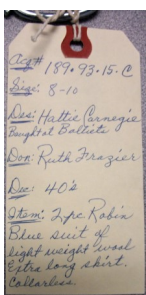 Acq# 189.93.15.C
Size: 8-10
Des: Hattie Carnegie
Bought at Baltists
Don: Ruth Frazier
Dec: 40's
Item: 2 pc Robin
Blue suit of
light weight wool
Extra long skirt.
Collarless.